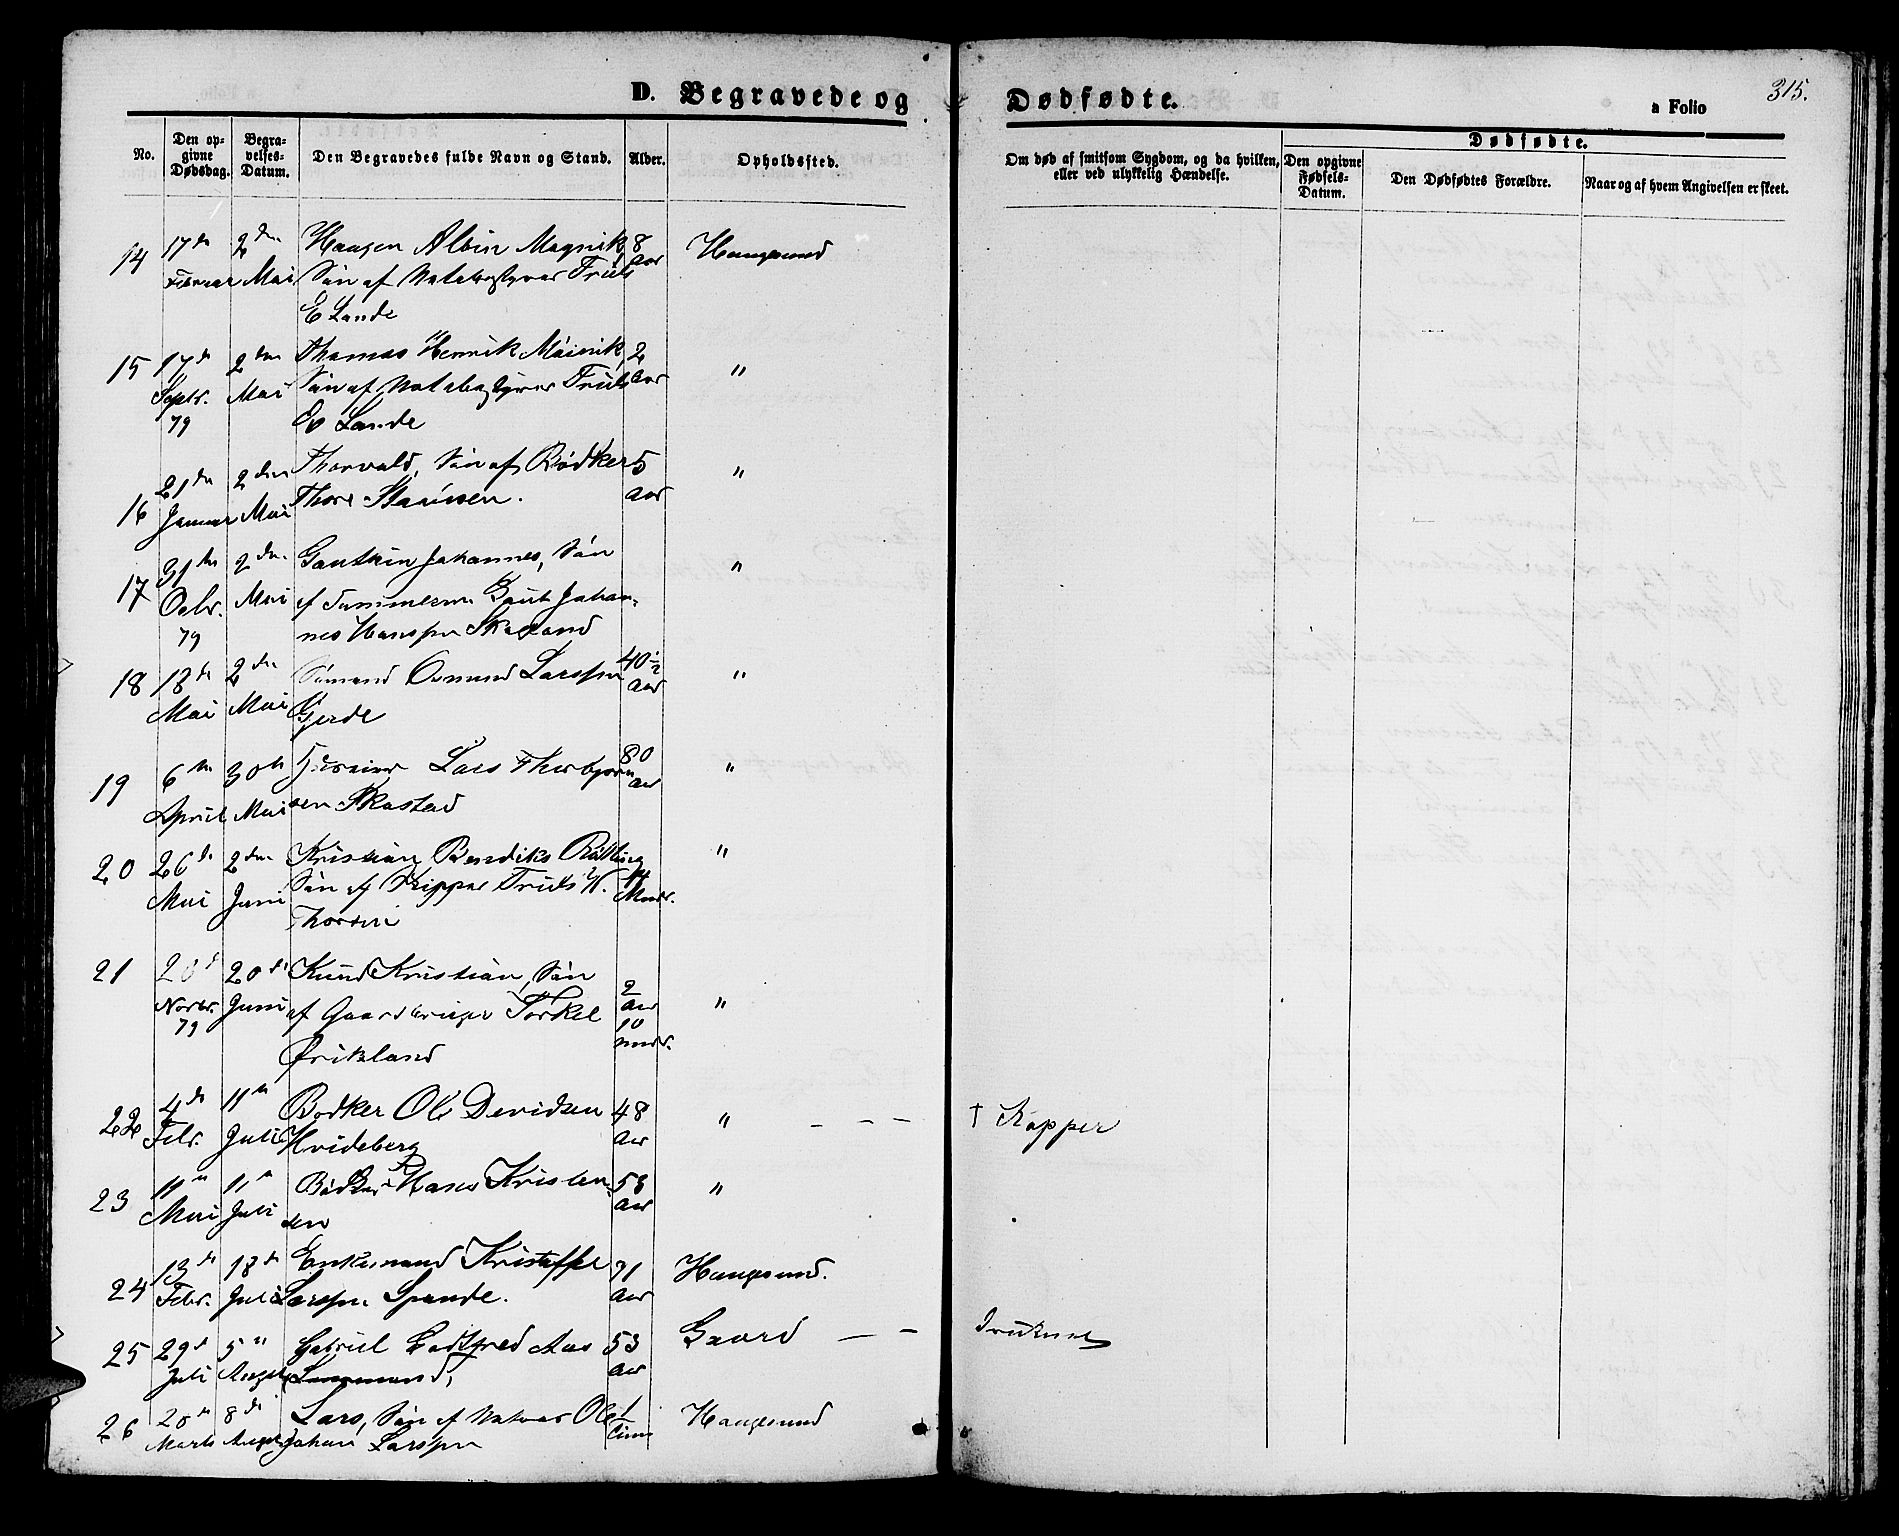 D. Begravede og Dødfødte.
a Folio 315.
No.
Den op-
givne
Dødsdag.
Begra-
velses-
Datum.
Den Begravedes fulde Navn og Stand.
Alder.
Opholdssted.
Om død af smitsom Sygdom, og da hvilken,
eller ved ulykkelig Hændelse.
Dødfødte.
Den opgivne
Fødsels-
Datum.
Den Dødfødtes Forældre.
Naar og af hvem Angivelsen er skeet.
14 17de 2den Haagen Albin 8 Haugesund
Februar Mai Søn af Truls Aar
E Lande
15 17de 2den Thomas Henrik 2 "
Septr. Mai Søn af Truls Aar
79 Lande
16 21de 2den Thorvald, Søn af Bødker 5 "
Januar Mai Thore Aar
17 31te 2den Johannes, Søn "
Octbr. Mai af Tømmerm Gaut Johan-
79 nes Hanssen
18 13de 2den Sømand Osmund Larssen 40½ "
Mai Mai Gjerde Aar
19 6te 30te Lars Thorbjørn 80 "
April Mai sen Skastad Aar
20 26de 2den Kristian Bendiks "
Mai Juni Søn af Skipper Truls W. 14
Thorsen Mndr.
21 20de 20de Knud Kristian, Søn 2
Novbr. Juni af Gaardbruger Torkel Aar "
79 10
Mndr.
22 4de 11te Bødker Ole Davidsen 48 " – – – † Kopper
Febr. Juli Hvideberg Aar
23 11te 11te Bødker Hans Kristen- 53 "
Mai Juli sen Aar
24 13de 18de Enkemand Kristoffer 71 Haugesund.
Febr. Juli Larssen Spande. Aar
25 29de 5te Gabriel Godtfred Aas 53 Gaard – – Druknet
Juli August Aar
26 20de 8de Lars, Søn af Ole 1 Haugesund
Marts August Johan Larssen Time